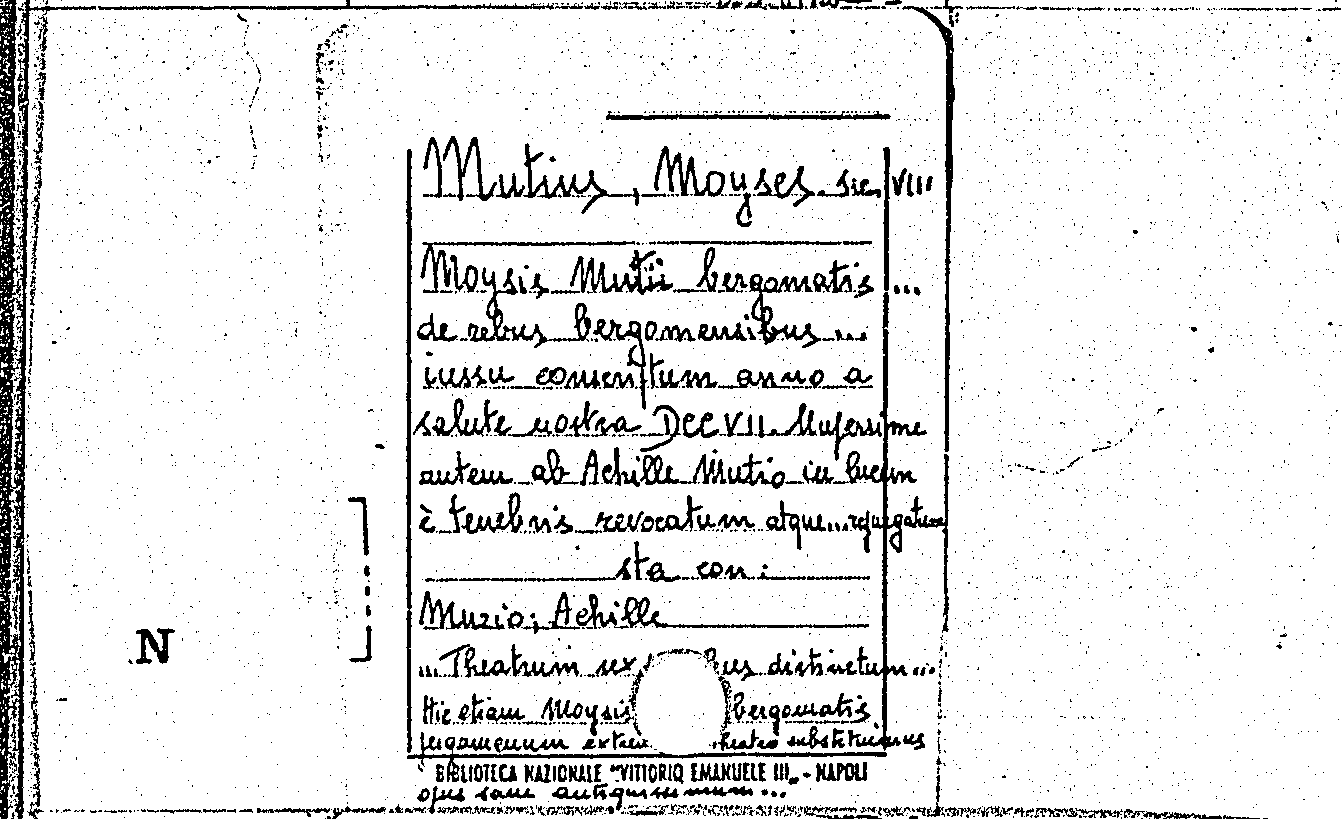 Mutius, Moyses. sec. VIII
Moysis Mutii bergomatis ...
de rebus bergomensibus ...
iussu conscriptum anno a
salute nostra DCCVII. Nuperrime
autem ab Achille Mutio in lucem
è tenebris revocatum atque... repurgatum
sta con:
Muzio, Achille
... Theatrum sex distinctum...
Hic etiam Moysis bergomatis
N
theatro substituimus
BIBLIOTECA NAZIONALE "VITTORIO EMANUELE III" - NAPOLI
opus sane antiquissimum...